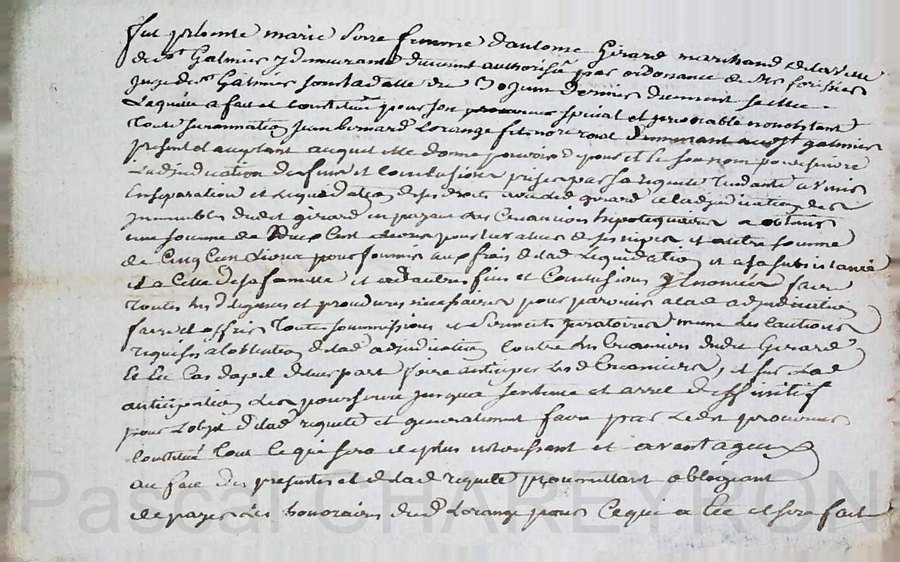 fut presente marie Serre femme d'antoine Girard marchand de la ville
de st Galmier y demeurant duement authorisée par ordonance de Mr
juge de st Galmier sous la datte du 30 juin dernier duement scellée
Laquelle a fait et constitué pour son procureur special et irrevocable nonobstant
toute surannation jean bernard Lorange fils notre royal demeurant audit st galmier
present et acceptant auquel elle donne pouvoir de pour et en son nom poursuivre
L'adjudication des fins et Conclusions prises par sa requete tendante a venir
En separation et Liquidation de ses droits avec led girard et l'adjudication des
immeubles dudit girard en payant des Creanciers hipotequaires a obtenir
une somme de deux Cent livres pour la valeur de ses nipes, et autre somme
de Cinq Cent livres pour fournir aux frais de lad Liquidation et a sa subsistance
et a Celle de sa famille et autres fins et Conclusions faire
toutes les diligences et procedures necessaires pour parvenir a lad adjudication
faire et offrir toutes soumissions et serments juratoires meme des Cautions
requises a l'obtention de lad adjudication Contre des Creanciers dudit Girard
Et en Cas d'apel de leur part faire anticiper Les d Creanciers, et sur Lad
anticipation Les poursuivre jusqua sentence et arret deffinitif
pour L'objet de lad requete et generalement faire par Ledit procureur
Constitué tout Ce qui sera le plus interessant et avantageux
au fait des presentes et de lad requete promettant obligeant
de payer les honoraires dud Lorange pour Ce qui a eté et sera fait
Pascal CHAREYRON